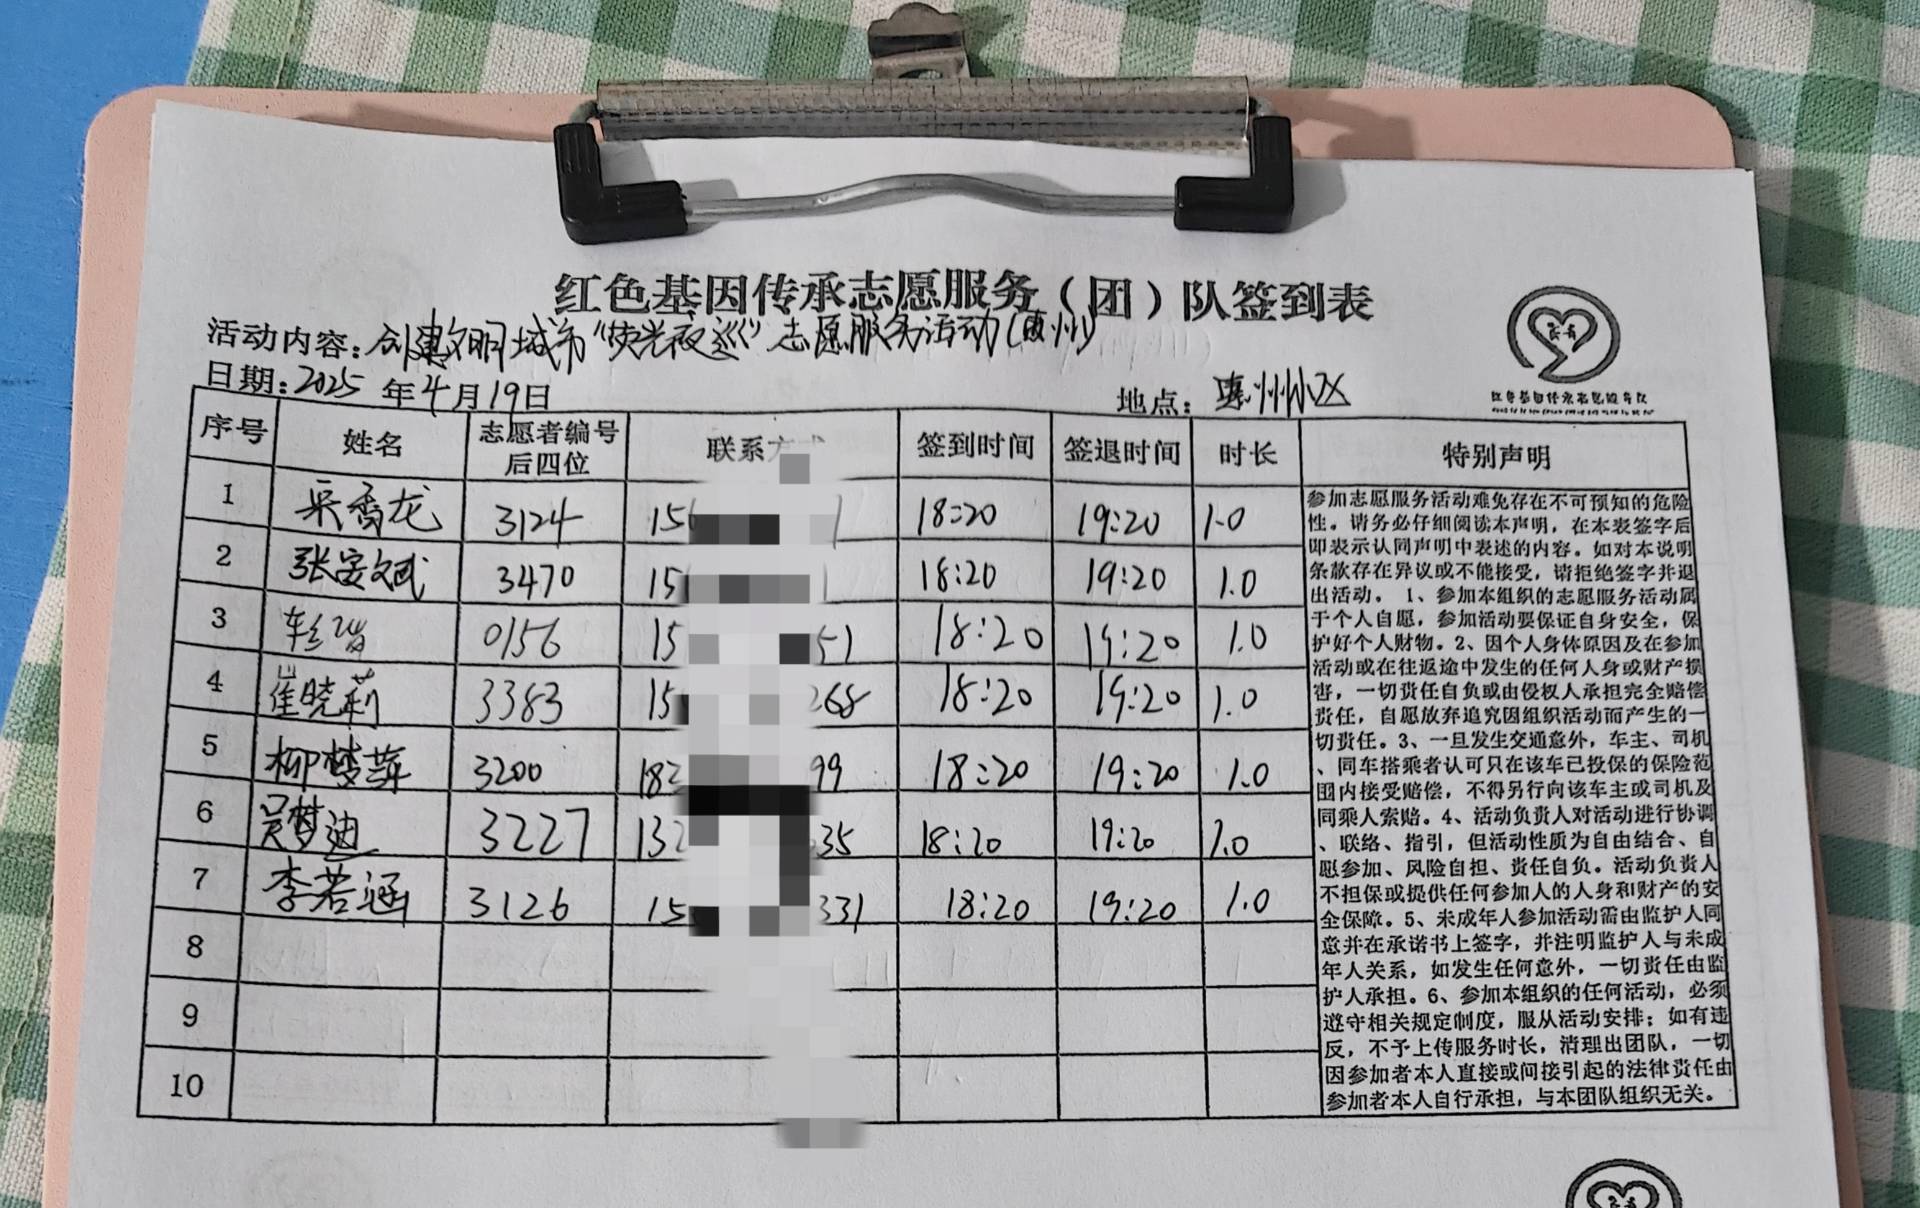 红色基因传承志愿服务（团）队签到表
活动内容：创建文明城市“荧光夜巡”志愿服务活动（惠州）
日期：2025年4月19日 地点：惠州小区
序号 姓名 志愿者编号后四位 联系方式 签到时间 签退时间 时长 特别声明
1 香龙 3124 15 1 18:20 19:20 1.0
2 张 文斌 3470 15 1 18:20 19:20 1.0
3 0156 15 51 18:20 19:20 1.0
4 崔晓莉 3383 15 268 18:20 19:20 1.0
5 柳梦萍 3200 182 99 18:20 19:20 1.0
6 吴梦迪 3227 132 35 18:20 19:20 1.0
7 李若涵 3126 15 331 18:20 19:20 1.0
8
9
10
参加志愿服务活动难免存在不可预知的危险
性。请务必仔细阅读本声明，在本表签字后
即表示认同声明中表述的内容。如对本说明
条款存在异议或不能接受，请拒绝签字并退
出活动。1、参加本组织的志愿服务活动属
于个人自愿，参加活动要保证自身安全，保
护好个人财物。2、因个人身体原因及在参加
活动或在往返途中发生的任何人身或财产损
害，一切责任自负或由侵权人承担完全赔偿
责任，自愿放弃追究因组织活动而产生的一
切责任。3、一旦发生交通意外，车主、司机
、同车搭乘者认可只在该车已投保的保险范
围内接受赔偿，不得另行向该车主或司机及
同乘人索赔。4、活动负责人对活动进行协调
、联络、指引，但活动性质为自由结合、自
愿参加、风险自担、责任自负。活动负责人
不担保或提供任何参加人的人身和财产的安
全保障。5、未成年人参加活动需由监护人同
意并在承诺书上签字，并注明监护人与未成
年人关系，如发生任何意外，一切责任由监
护人承担。6、参加本组织的任何活动，必须
遵守相关规定制度，服从活动安排；如有违
反，不予上传服务时长，清理出团队，一切
因参加者本人直接或间接引起的法律责任由
参加者本人自行承担，与本团队组织无关。